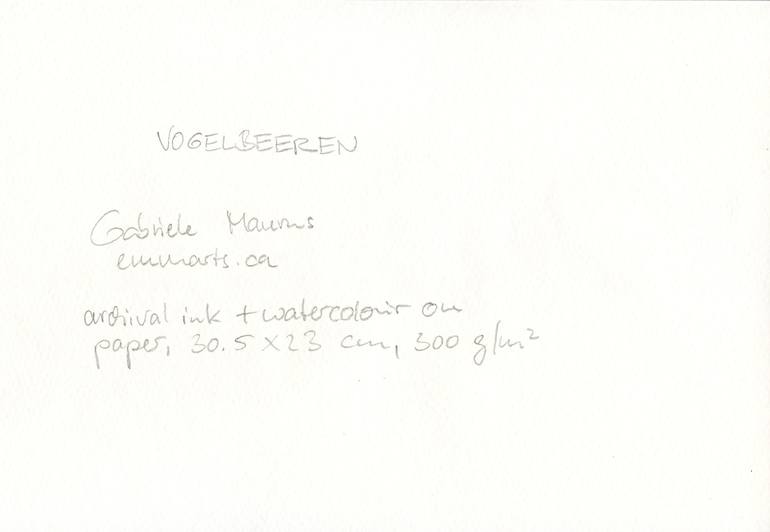 VOGELBEEREN
Gabriele Maurus
emmarts.ca
archival ink + watercolour on
paper, 30.5 x 23 cm, 300 g/m²